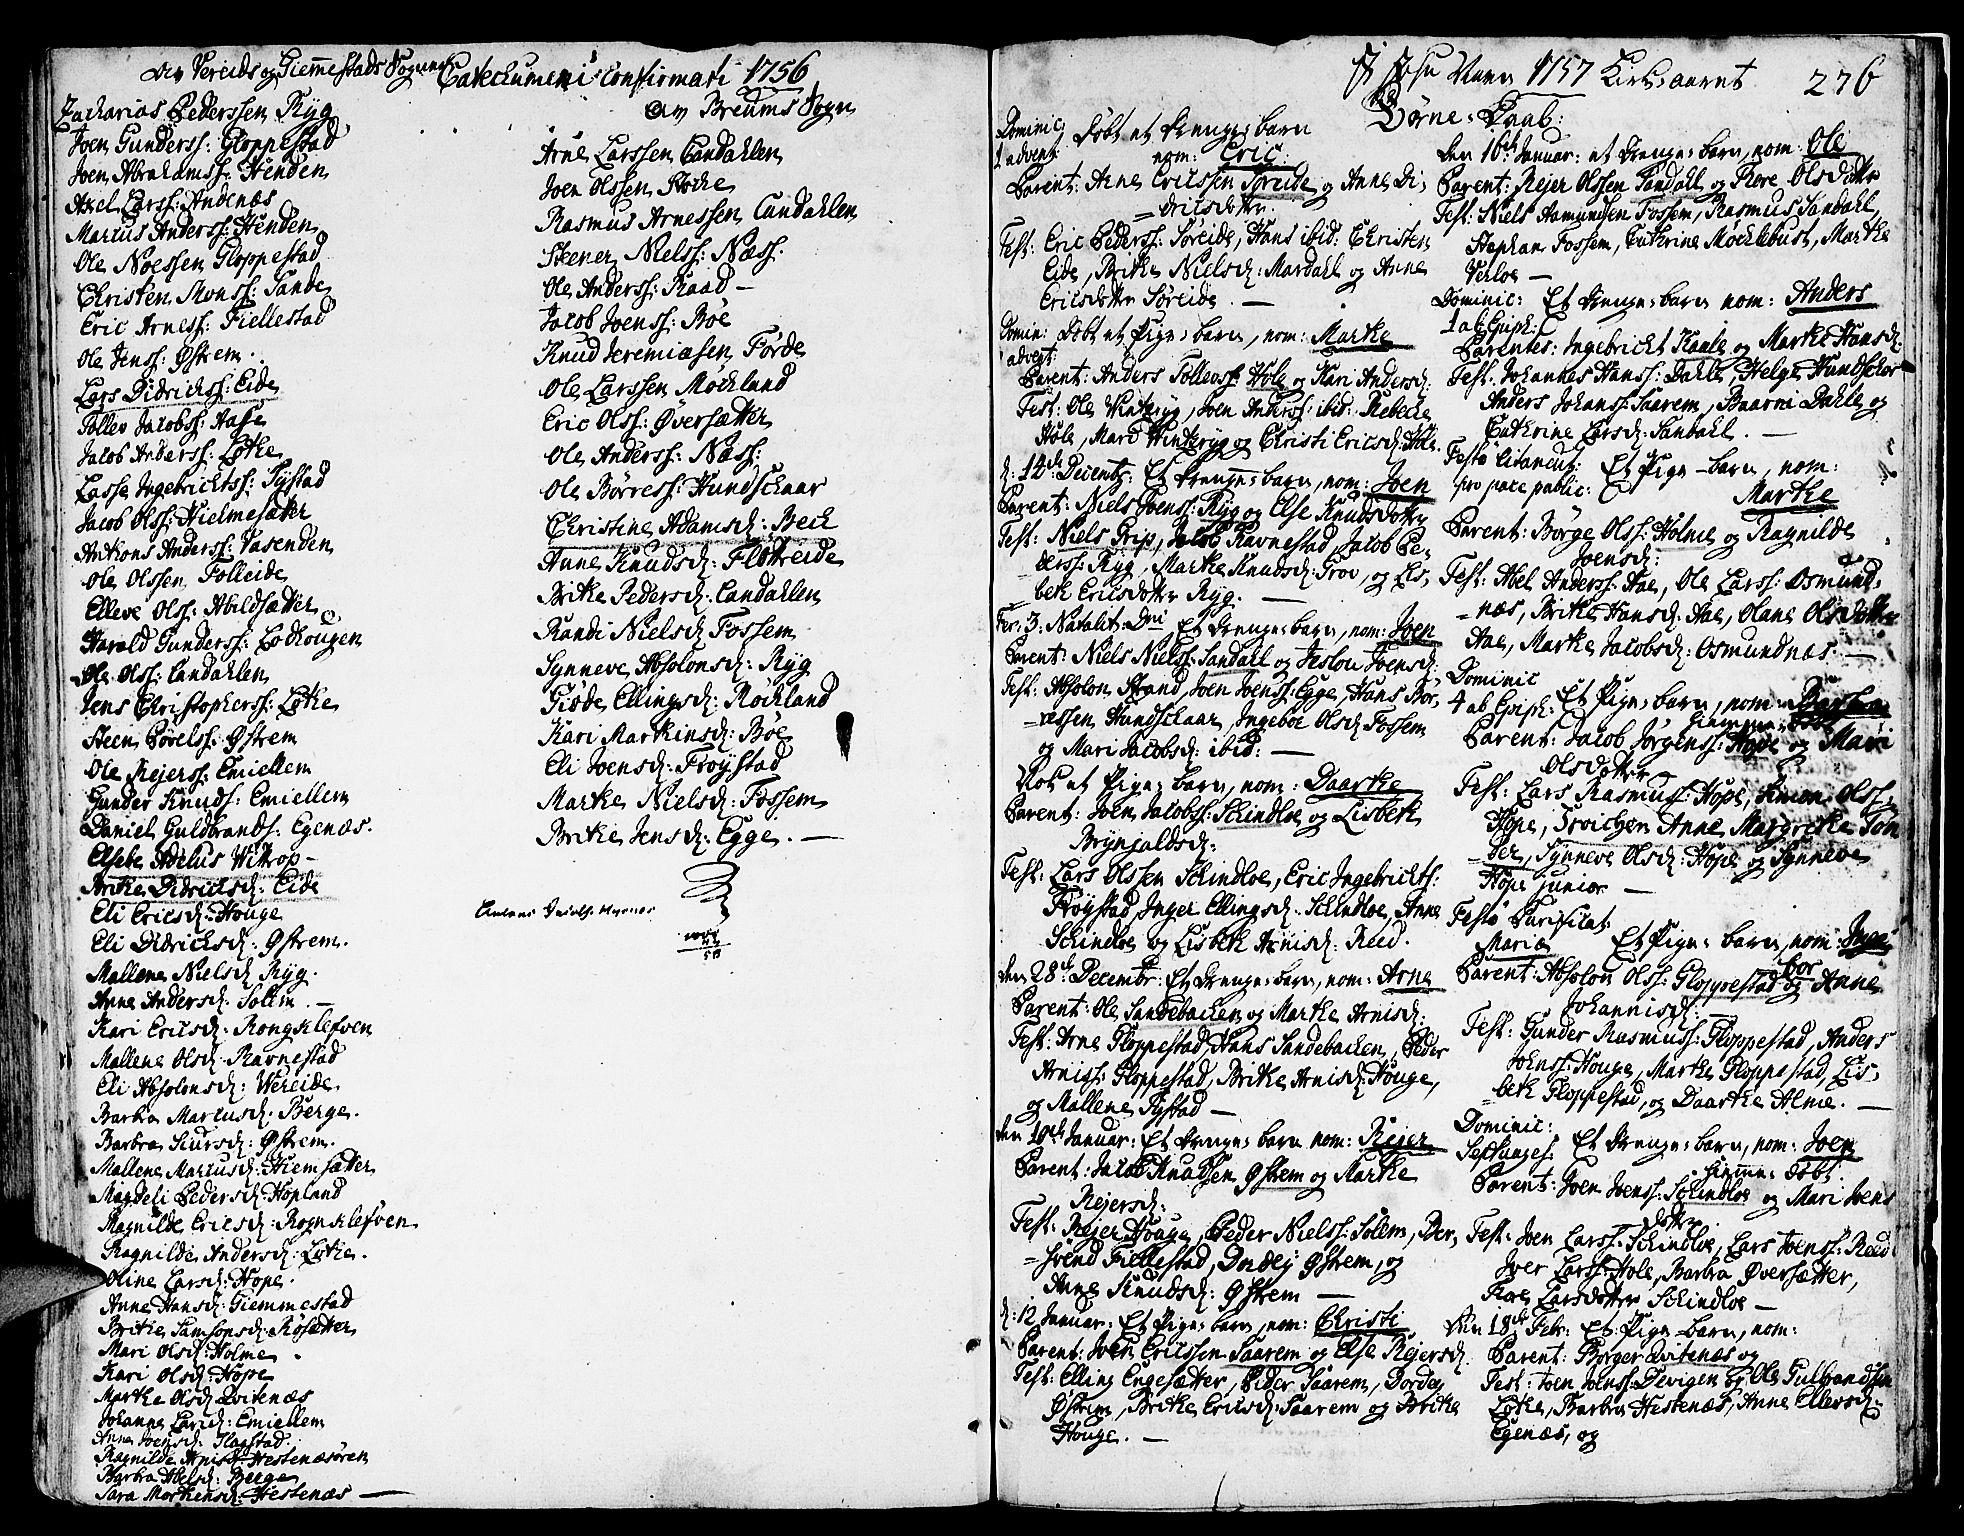 Catechumeni confirmati 1756
av Vereids og Giemmestads Sogner
Zacharias Pederssen Ryg
Joen Gunderss: Gloppestad
Joen Abrahamss: Henden
Axel Larss: Andenæs
Marcus Anderss: Henden
Ole Noessen Gloppestad
Christen Monss: Sande
Eric Arness: Fiellestad
Ole Jenss: Østrem
Lars Didrichss: Eide
Tollev Jacobss: Aase
Jacob Anderss: Løtke
Lasse Ingebrichtss: Systad
Jacob Olss: Hielmesæter
Anthons Anderss: Vasenden
Ole Olssen Folleide
Elleve Olss: Abildsætter
Harald Gunderss: Lodkougen
Ole Olss: Candahlen
Jens Christopherss: Løtke
Steen Børelss: Østrem
Ole Rejerss: Emiellem
Gunder Knuds: Emiellem
Daniel Guldbrands: Egenæs.
Elsebe Adelus Wittrop
Birthe Didricsd: Eide
Eli Ericsd: Houge
Eli Didrichsd: Østrem.
Mallene Nielsd: Ryg.
Anne Andersd: Solem.
Kari Ericsd: Rongklefven
Mallene Olsd: Ravnestad
Eli Absolonsd: Wereide
Barbra Marcusd: Berge.
Barbra Siursd: Østrem.
Mallene Marcusd: Hiemsæter
Magdeli Pedersd: Hopland
Ragnilde Ericsd: Rognklefven
Ragnilde Andersd: Løtke.
Oline Larsd: Hope.
Anne Hansd: Giemmestad
Brithe Samsonsd: Røsæter
Mari Olsd: Holme
Kari Olsd: Hope
Marthe Olsd: Qvitenæs
Johanne Larsd: Emiellem
Anne Joensd: Flogstad
Ragnilde Arnisd: Hestenæsøren
Barbra Abelsd: Berge
Sara Mortensd: Hestenæs
av Breums Sogn
Arne Larssen Candahlen
Joen Olssen Flocke
Rasmus Arnessen Candahlen
Steener Nielss: Næss:
Ole Anderss: Raad
Jacob Joenss: Bøe
Knud Jeremiasen Førde
Ole Larssen Mochland
Eric Olss: Øversætter
Ole Anderss: Næss:
Ole Børress: Hundschaar
Christine Adamsd: Beck
Anne Knudsd: Flotreide
Brithe Pedersd: Candahlen
Randi Nielsd: Fossem
Synneve Absolonsd: Ryg
Giøde Ellingsd: Mochland
Kari Martinsd: Bøe
Eli Joensd: Frøystad
Marthe Nielsd: Fossem
Brithe Jensd: Egge.
58
J Jesu Navn 1757 Kirke aaret 276
Børne-Daab:
Dominic 1 advent: Døbt et Drenge barn
nom: Eric.
Parent: Arne Ericssen Søreide og Anne Di-
dricsdotter.
Test: Eric Pederss: Søreide, Hans ibid: Christen
Eide, Brithe Nielsd: Mardahl og Anne
Ericsdotter Søreide.
Domin: advent: Døbt et Pige barn, nom: Marthe
Parent: Anders Tollevss: Hole og Kari Andersd:
Test: Ole Vinteryg, Joen Anderss: ibid: Rebecke
Hole, Mari Vinteryg og Christi Ericsd: Hole.
d: 14de Decemb: Et Drenge barn, nom: Joen
Parent: Niels Joenss: Ryg og Else Knudsdotter
Test: Niels Grip, Jacob Ravnestad Jacob Pe-
derss: Ryg, Marthe Knudsd: Troe, og Lis-
beth Ericsdotter Ryg.
Fer: 3. Natalit: Dni Et Drenge barn, nom: Joen
Parent: Niels Nielss: Sandahl og Jeslou Joensd:
Test: Absolon Strand, Joen Joenss: Egge, Hans Bør-
ressen Hundschaar, Ingeboe Olsd: Fossem
og Mari Jacobsd: ibid:
Noch et Pige barn, nom: Daarthe
Parent: Joen Jacobss: Schindloe og Lisbeth
Brynjaldsd:
Test: Lars Olssen Schindloe, Eric Ingebrichts:
Frøystad, Inger Ellingsd: Schindloe, Anne
Schindloe og Lisbeth Arnisd: Reed.
den 28de Decembr: Et Drenge barn, nom: Arne
Parent: Ole Sandebachen og Marthe Arnisd:
Test: Arne Gloppestad, Hans Sandebachen, Peder
Arniss: Gloppestad, Brithe Arnisd: Houge,
og Mallene Systad
den 10de Januar: Et Drenge barn nom: Rejer
Parent: Jacob Knudssen Østrem og Marthe
Rejersd:
Test: Rejer Houge, Peder Nielss: Solem, Ber-
svend Fiellestad, Dordey Østrem, og
Anne Knudsd: Østrem
d: 12 Januar: Et Pige barn, nom: Christi
Parent: Joen Ericssen Saarem og Else Rejersd:
Test: Elling Engesætter, Peder Saarem, Dordey
Østrem, Brithe Ericsd: Saarem og Brithe
Houge.
den 16de Januar: et Drenge barn, nom: Ole
Parent: Rejer Olssen Sandahl og Thore Olsdotter
Test: Niels Aamundsen Fossem, Rasmus Sandahl,
Stephan Fossem, Cathrine Mochlebust, Marthe
Verloe
Dominic: 1 ab Epiph: Et Drenge barn nom: Anders
Parentes: Ingebricht Kaale og Marthe Hansd:
Test: Johannes Hanss: Dahle, Helge Hundschar
Anders Johanss: Saarem, Baarni Dahle og
Cathrine Larsd: Sandahl.
Festo Litandi: pro pace public: Et Pige-barn, nom:
Marthe
Parent: Børge Olss: Holme og Ragnilde
Joensd:
Test: Abel Anderss: Aae, Ole Larss: Osmund-
næs, Brithe Hansd: Aae, Olane Olsdotter
Aae, Marthe Jacobsd: Osmundnæs.
Dominic 4 ab Epiph: Et Pige barn, nom:
hiemme døbt
Parent: Jacob Jørgenss: Hope og Mari
Olsdotter
Test: Lars Rasmuss: Hope, Simon Olss:
Hope, Froichen Anne Margrethe Ton
der, Synneve Olsd: Hope og Synneve
Hope junior
Festo Purificat: Mariæ Et Pige barn, nom: Inge
bor
Parent: Absolon Olss: Gloppestad og Anne
Johannisd:
Test: Gunder Rasmuss: Gloppestad, Anders
Johnss: Houge, Marthe Gloppestad, Lis-
beth Gloppestad, og Daarthe Alme.
Dominic: Septuages: Et Drenge barn, nom: Joen
hiemme døbt.
Parent: Joen Joenss: Schindloe og Mari Joens
dotter
Test: Joen Larss: Schindloe, Lars Joenss: Reed
Joer Larss: Hole, Barbra Øversætter,
Thore Larsdotter Schindloe
Den 18de Febr: Et Pige-barn, nom:
Parent: Børger Qvitenæs og
Test: Joen Joenss: Devigen og Ole Gulbrandsen
Løtke, Barbra Hestenæs, Anne Ellevsd:
Egenæs, og